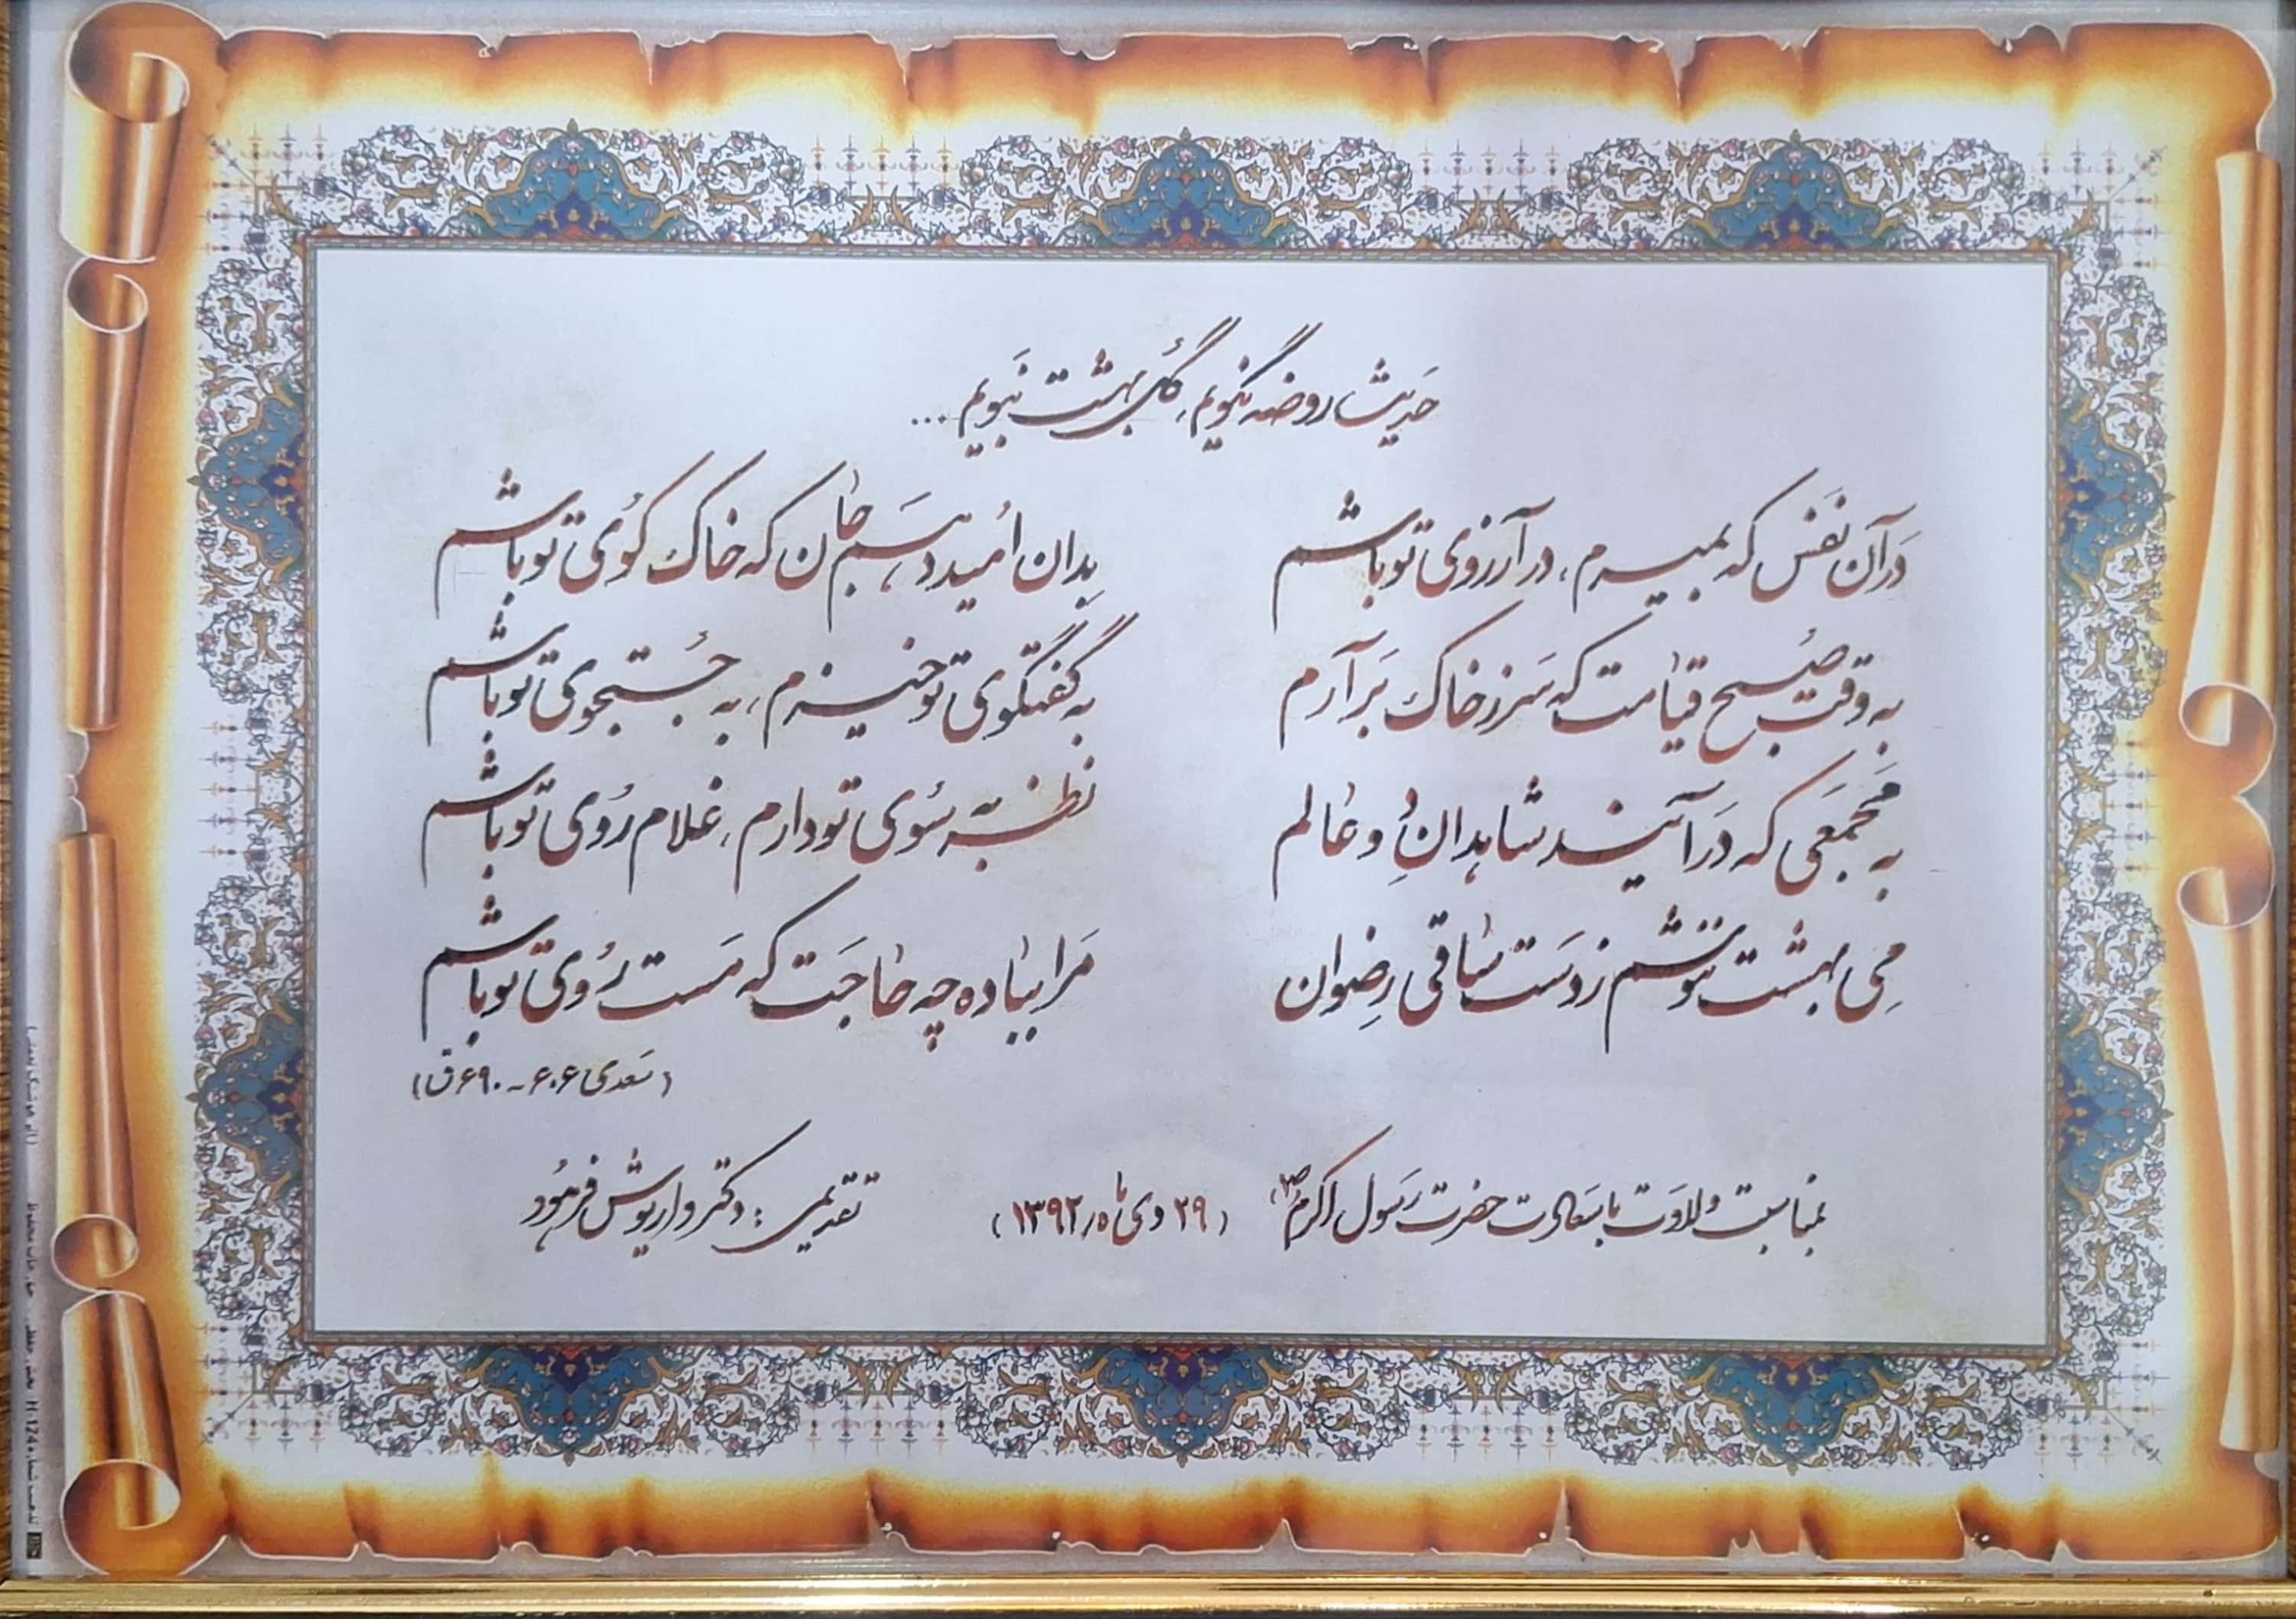 حَدیث روضه نگویم، گُلِ بهشت نَبویم ...
دَر آن نَفَس که بمیرم، در آرزوی تو باشم
بِدان اُمید دهم جان که خاک کُوی تو باشم
به وقت صُبح قیامت که سَر ز خاک بَر آرم
به گفتگوی تو خیزم، به جُستجوی تو باشم
به مَجمَعی که دَر آیند شاهدانِ دُو عالم
نظر به سُوی تو دارم، غلام رُوی تو باشم
مِی بهشت ننوشم ز دَست ساقی رِضوان
مَرا بباده چه حاجَت که مَست رُوی تو باشم
(سَعدی ۶۰۶ - ۶۹۰ ق)
بمناسبت ولادَت با سَعادت حضرت رَسول اکرم (ص) (۲۹ دی ماه ۱۳۹۲) تقدیمی: دکتر داریوش فرهُود